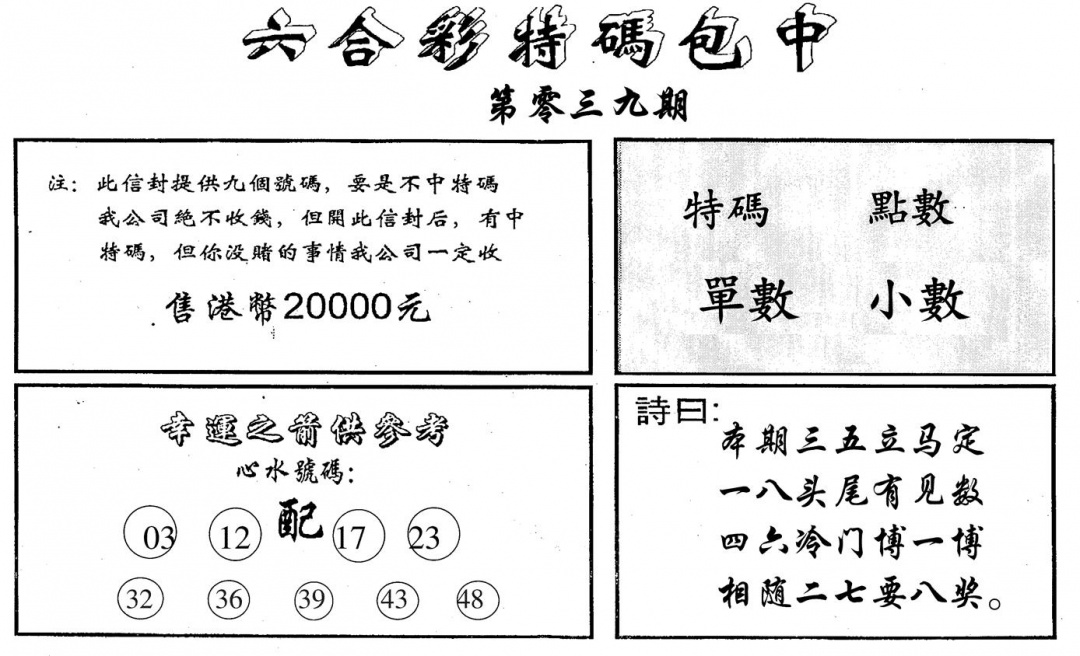 六合彩特碼包中
第零三九期
注：此信封提供九個號碼，要是不中特碼
我公司絶不收錢，但開此信封后，有中
特碼，但你没賭的事情我公司一定收
售港幣20000元
特碼 點數
單數 小數
幸運之箭供參考
心水號碼：
配
03 12 17 23
32 36 39 43 48
詩曰：
本期三五立马定
一八头尾有见数
四六冷门博一博
相随二七要八奖。